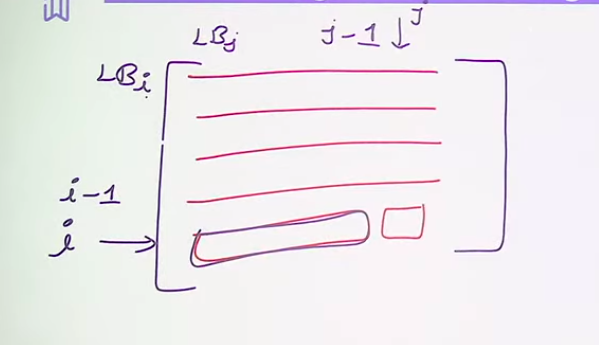 LBj j-1 j
LBi
i-1
i